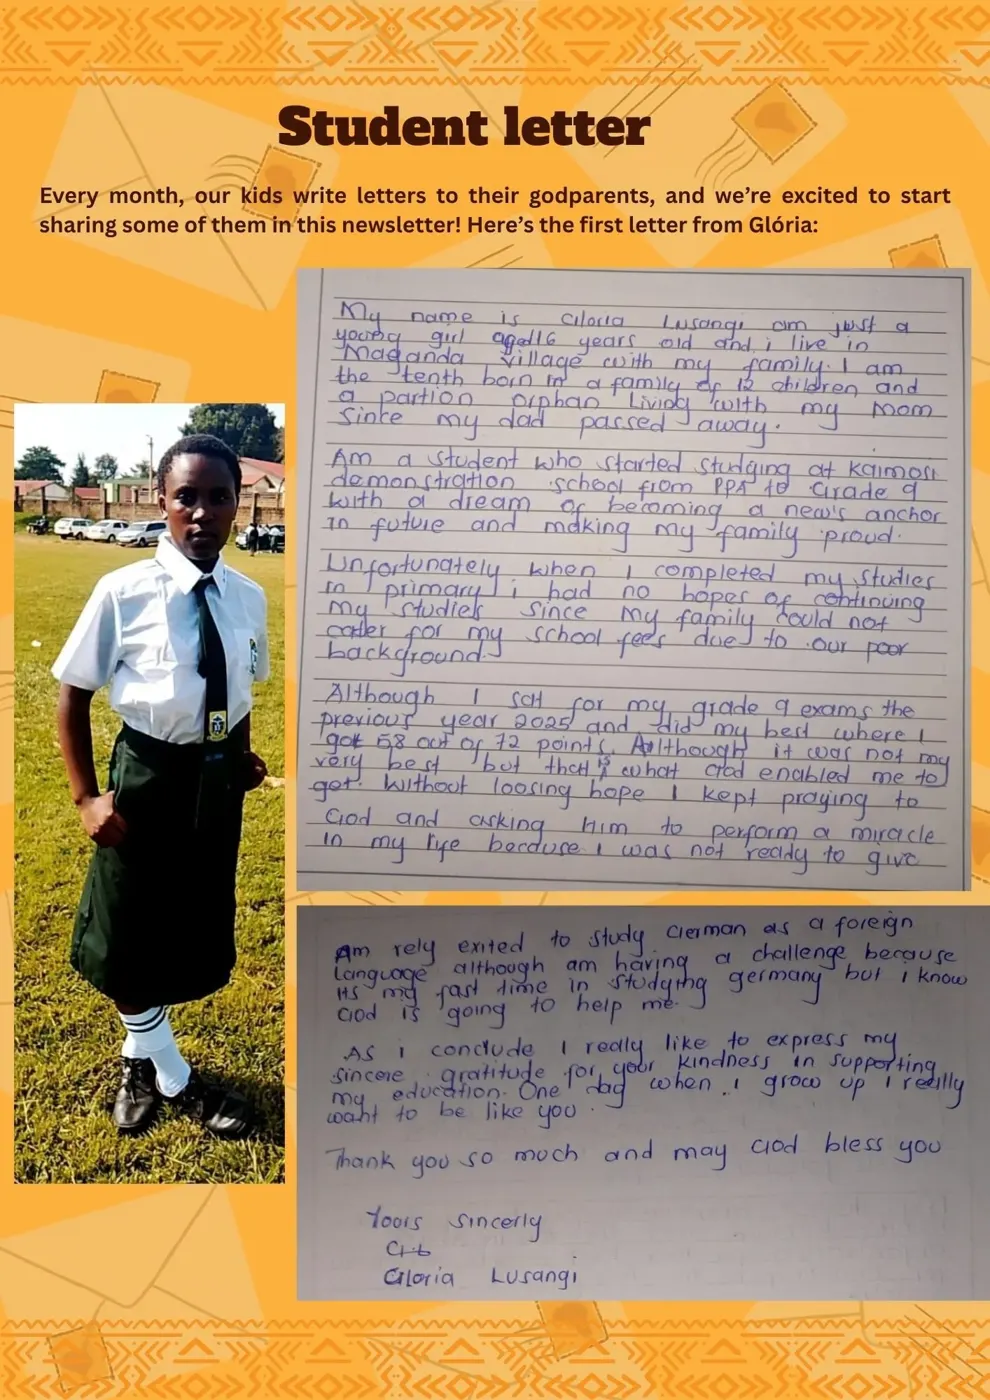 Student letter
Every month, our kids write letters to their godparents, and we're excited to start
sharing some of them in this newsletter! Here's the first letter from Glória:
My name is Gloria Lusangi am just a
young girl aged 16 years old and i live in
Maganda village with my family. I am
the tenth born in a family of 12 children and
a partion orphan living with my mom
since my dad passed away.
Am a student who started studying at Kaimosi
demonstration school from PP1 to Grade 9
with a dream of becoming a new's anchor
in future and making my family proud.
Unfortunately when I completed my studies
in primary i had no hopes of continuing
my studies since my family could not
cater for my school fees due to our poor
background.
Although I sat for my grade 9 exams the
previous year 2025 and did my best where I
got 58 out of 72 points. Although it was not my
very best but that is what God enabled me to
get. Without loosing hope I kept praying to
God and asking Him to perform a miracle
in my life because I was not ready to give
Am rely exited to study German as a foreign
language although am having a challenge because
its my fast time in studying germany but i know
God is going to help me.
As i conclude I really like to express my
sincere gratitude for your kindness in supporting
my education. One day when i grow up I really
want to be like you.
Thank you so much and may God bless you
Yours sincerly
Gloria Lusangi